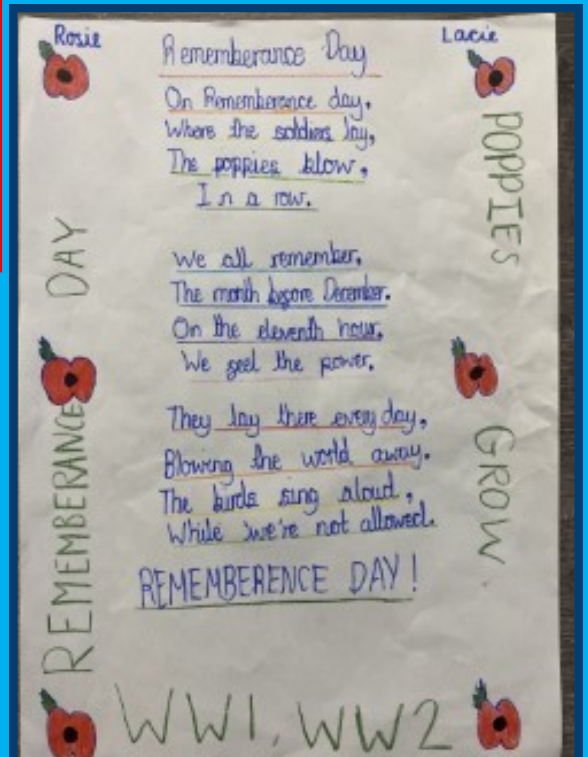 Rosie
Lacie
Rememberance Day
On Rememberence day,
Where the soldiers lay,
The poppies blow,
In a row.
We all remember,
The month before December.
On the eleventh hour,
We feel the power.
They lay there every day,
Blowing the world away.
The birds sing aloud,
While we're not allowed.
REMEMBERENCE DAY!
REMEMBERANCE DAY
POPPIES GROW.
WW1, WW2